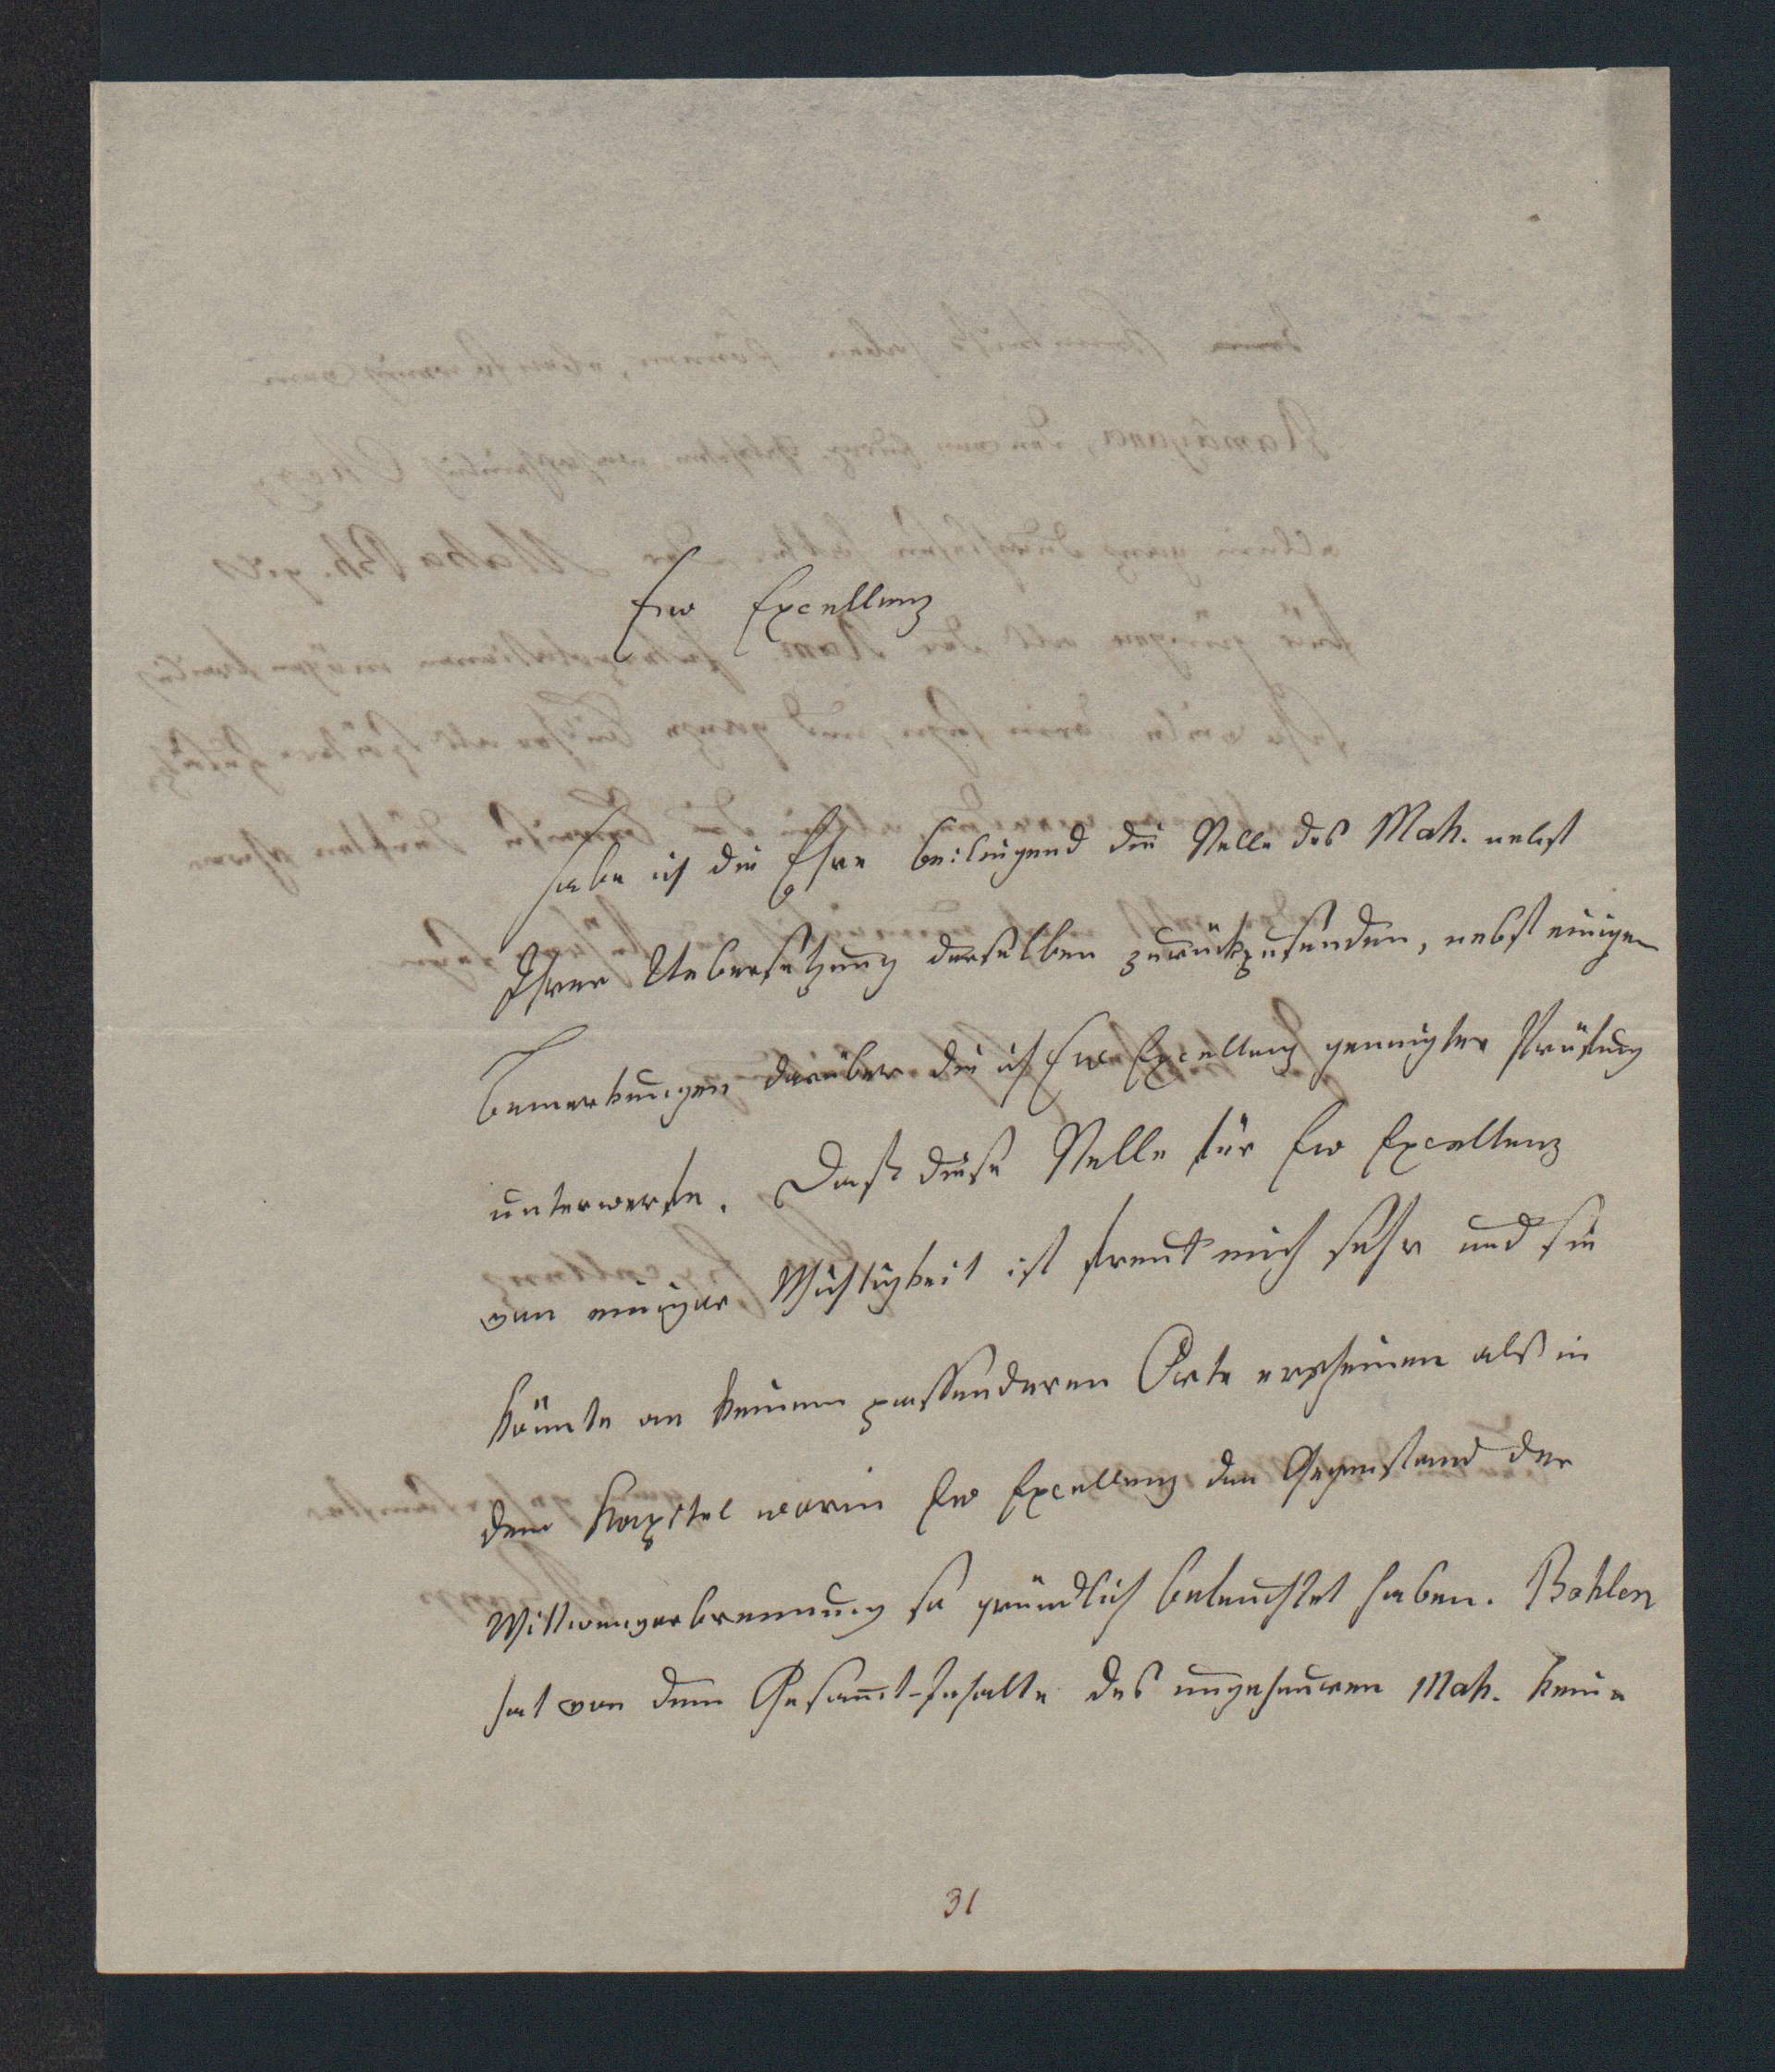 Ew Excellenz
habe ich die Ehre beiliegend die Stelle des Mah. nebst
Ihrer Uebersetzung derselben zurückzusenden, nebst einigen
Bemerkungen darüber die ich Ew Excellenz geneigter Prüfung
unterwerfe. Daß diese Stelle für Ew Excellenz
von einiger Wichtigkeit ist freut mich sehr und sie
könnte an keinem passenderen Orte erscheinen als in
dem Kapitel worin Ew Excellenz den Gegenstand der
Wittwenverbrennung so gründlich beleuchtet haben. Bohlen
hat von dem Gesam̅t-Inhalte des ungeheuren Mah. keine
31